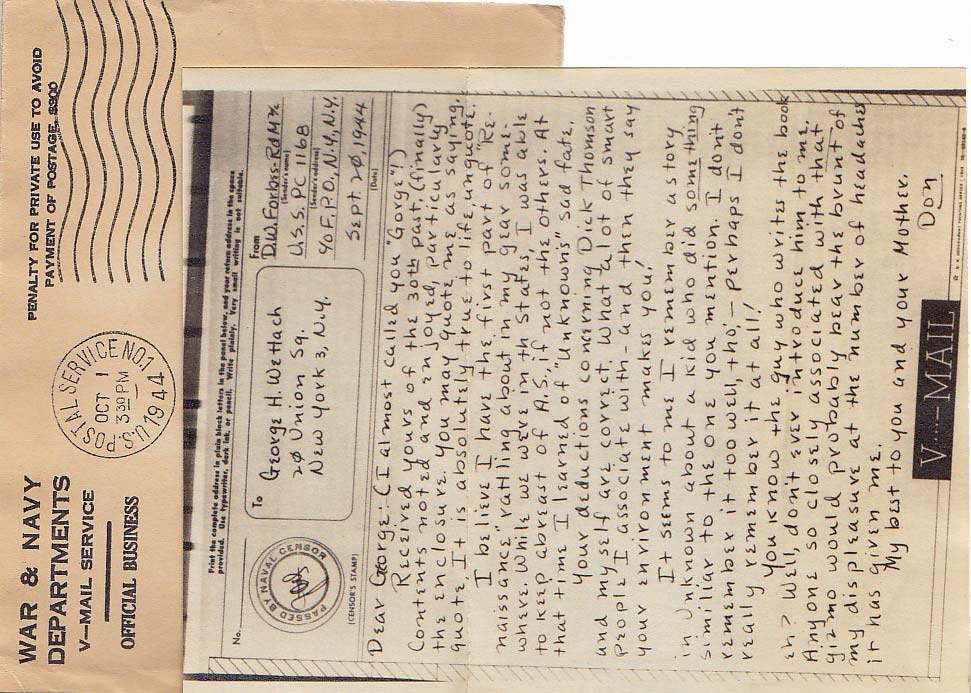 WAR & NAVY
DEPARTMENTS
V-MAIL SERVICE
OFFICIAL BUSINESS
U.S. POSTAL SERVICE NO. 1
OCT 1
3 30 PM
1944
PENALTY FOR PRIVATE USE TO AVOID
PAYMENT OF POSTAGE, $300
Print the complete address in plain block letters in the panel below, and your return address in the space
provided. Use typewriter, dark ink, or pencil. Very small writing is not suitable.
No.
PASSED BY NAVAL CENSOR
(CENSOR'S STAMP)
To
George H. Wetlach
20 Union Sq.
New York 3, N.Y.
From
D.W. Forbes-RdM 3/c
(Sender's name)
U.S. PC 1168
(Sender's address)
c/o F.P.O., N.Y., N.Y.
Sept. 20, 1944
(Date)
Dear George: (I almost called you "George"!)
Received yours of the 30th past, (finally)
contents noted and enjoyed, particularly
the enclosure. You may quote me as saying,
quote, It is absolutely true to life, unquote.
I believe I have the first part of "Re-
naissance" rattling about in my gear some-
where. While we were in the States, I was able
to keep abreast of A.S., if not the others. At
that time I learned of "Unknowns" sad fate.
Your deductions concerning Dick Thomson
and myself are correct. What a lot of smart
people I associate with - and then they say
your environment makes you!
It seems to me I remember a story
in Unknown about a kid who did something
similiar to the one you mention. I don't
remember it too well, tho', - perhaps I dont
really remember it at all!
You know the guy who writes the book
eh? Well, dont ever introduce him to me.
Anyone so closely associated with that
gizmo would probably bear the brunt of
my displeasure at the number of headaches
it has given me.
My best to you and your Mother.
Don
V····—MAIL